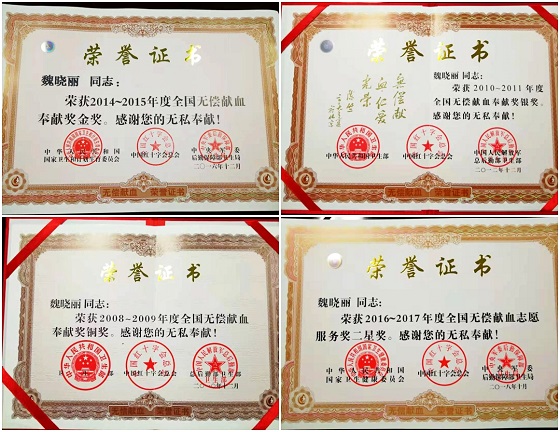 荣誉证书
魏晓丽 同志:
荣获2014~2015年度全国无偿献血
奉献奖金奖。感谢您的无私奉献!
中华人民共和国
国家卫生和计划生育委员会
中国红十字会总会
中央军委
后勤保障部卫生局
二〇一六年十二月
无偿献血 荣誉证书
荣誉证书
魏晓丽 同志:
荣获2010~2011年度
全国无偿献血奉献奖银奖。
感谢您的无私奉献!
无偿献
血仁爱
光荣
中华人民共和国卫生部
中国红十字会总会
中国人民解放军
总后勤部卫生部
二〇一二年十二月
无偿献血 荣誉证书
荣誉证书
魏晓丽 同志:
荣获2008~2009年度全国无偿献血
奉献奖铜奖。感谢您的无私奉献!
中华人民共和国卫生部
中国红十字会总会
总后勤部卫生部
无偿献血 荣誉证书
荣誉证书
魏晓丽 同志:
荣获2016~2017年度全国无偿献血志愿
服务奖二星奖。感谢您的无私奉献!
中华人民共和国
国家卫生健康委员会
中国红十字会总会
中央军委
后勤保障部卫生局
无偿献血 荣誉证书